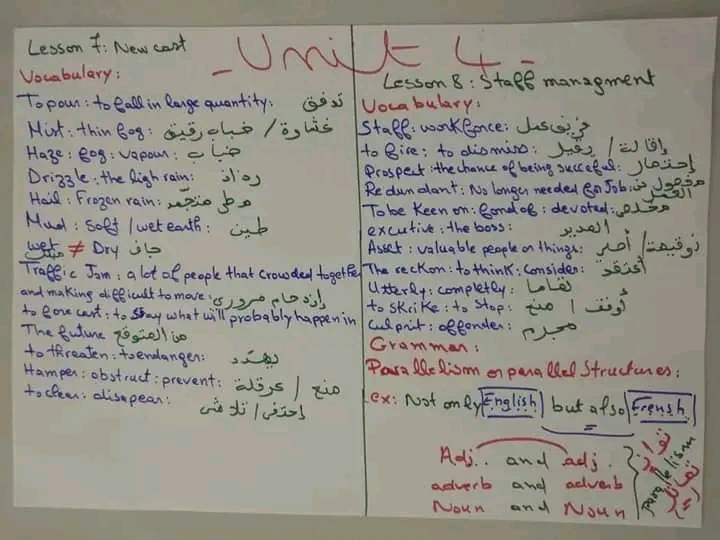 - Unit 4 -
Lesson 7: New cast
Vocabulary:
To pour: to fall in large quantity: تدفق
Mist: thin fog: غشاوة / ضباب رقيق
Haze: fog: vapour: ضباب
Drizzle: the ligh rain: رذاذ
Hail: Frozen rain: مطر متجمد
Mud: soft / wet earth: طين
wet مبتل ≠ Dry جاف
Traffic Jam: a lot of people that crowded together
and making difficult to move: إزدحام مروري
to fore cast: to say what will probably happen in
The future من المتوقع
to threaten: to endanger: يهدد
Hamper: obstruct: prevent: منع / عرقلة
to clear: disapear: إختفى / تلاشى
Lesson 8: Staff managment
Vocabulary:
Staff: work force: فريق عمل
to fire: to dismiss: يقيل / إقالة
Prospect: the chance of being succeful: إحتمال
Redundant: No longer needed for Job: مفصول من العمل
To be Keen on: fond of: devoted: مخلص
excutive: the boss: المدير
Asset: valuable people on things: ذو قيمة / أصل
The reckon: to think: consider: أعتقد
Utterly: completly: تماما
to skrike: to stop: أوقف / منع
Culprit: offender: مجرم
Grammar:
Parallelism or parallel Structures:
ex: Not only English but also Frensh
Adj. and adj.
adverb and adverb
Noun and Noun
parallelism